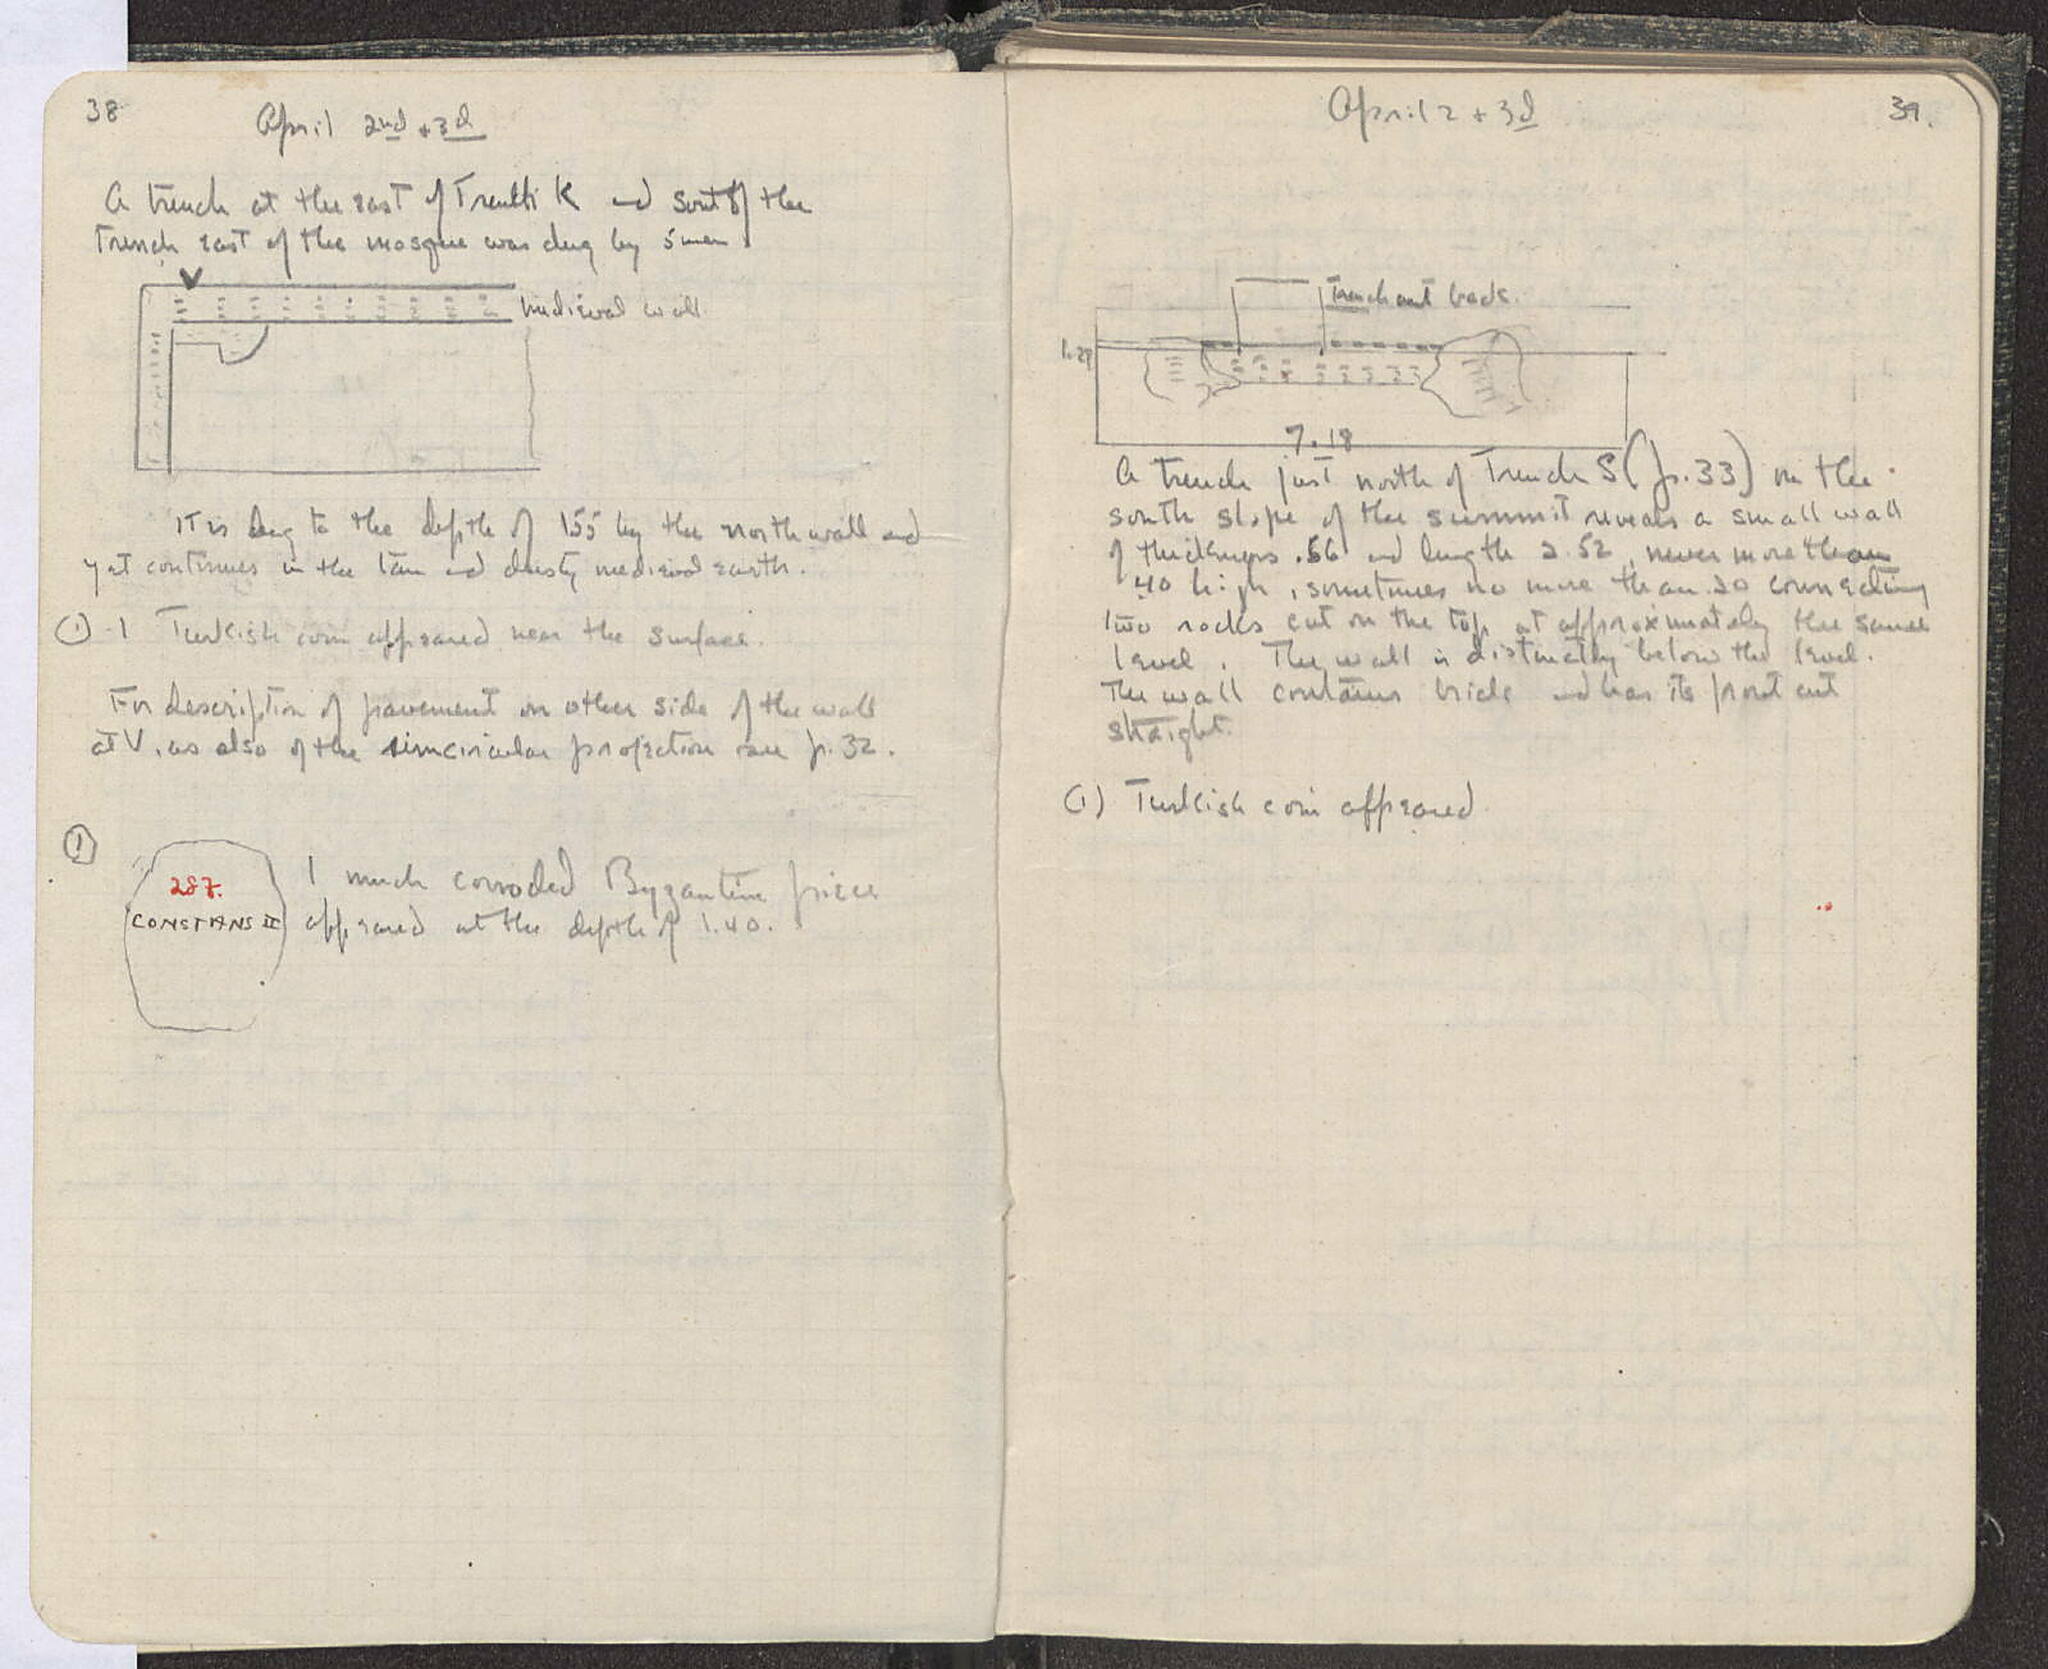 38
April 2nd + 3d
A trench at the east of Trench K and South of the
trench east of the mosque was dug by 5 men.
V
medieval wall
It is dug to the depth of 155 by the north wall and
yet continues in the tan and dusty medieval earth.
(1) 1 Turkish coin appeared near the surface.
For description of pavement on other side of the wall
at V, as also of the simcircular projection see p. 32.
(1)
287.
CONSTANS II
1 much corroded Byzantine piece
appeared at the depth of 1.40.
April 2 + 3d
39.
Trench cut back.
1.29
7.18
A trench just north of Trench S (p. 33) on the
south slope of the summit reveals a small wall
of thickness .56 and length 2.52, never more than
.40 high, sometimes no more than .20 connecting
two rocks cut on the top at approximately the same
level. The wall is distinctly below the level.
The wall contains brick and has its front cut
straight.
(1) Turkish coin appeared